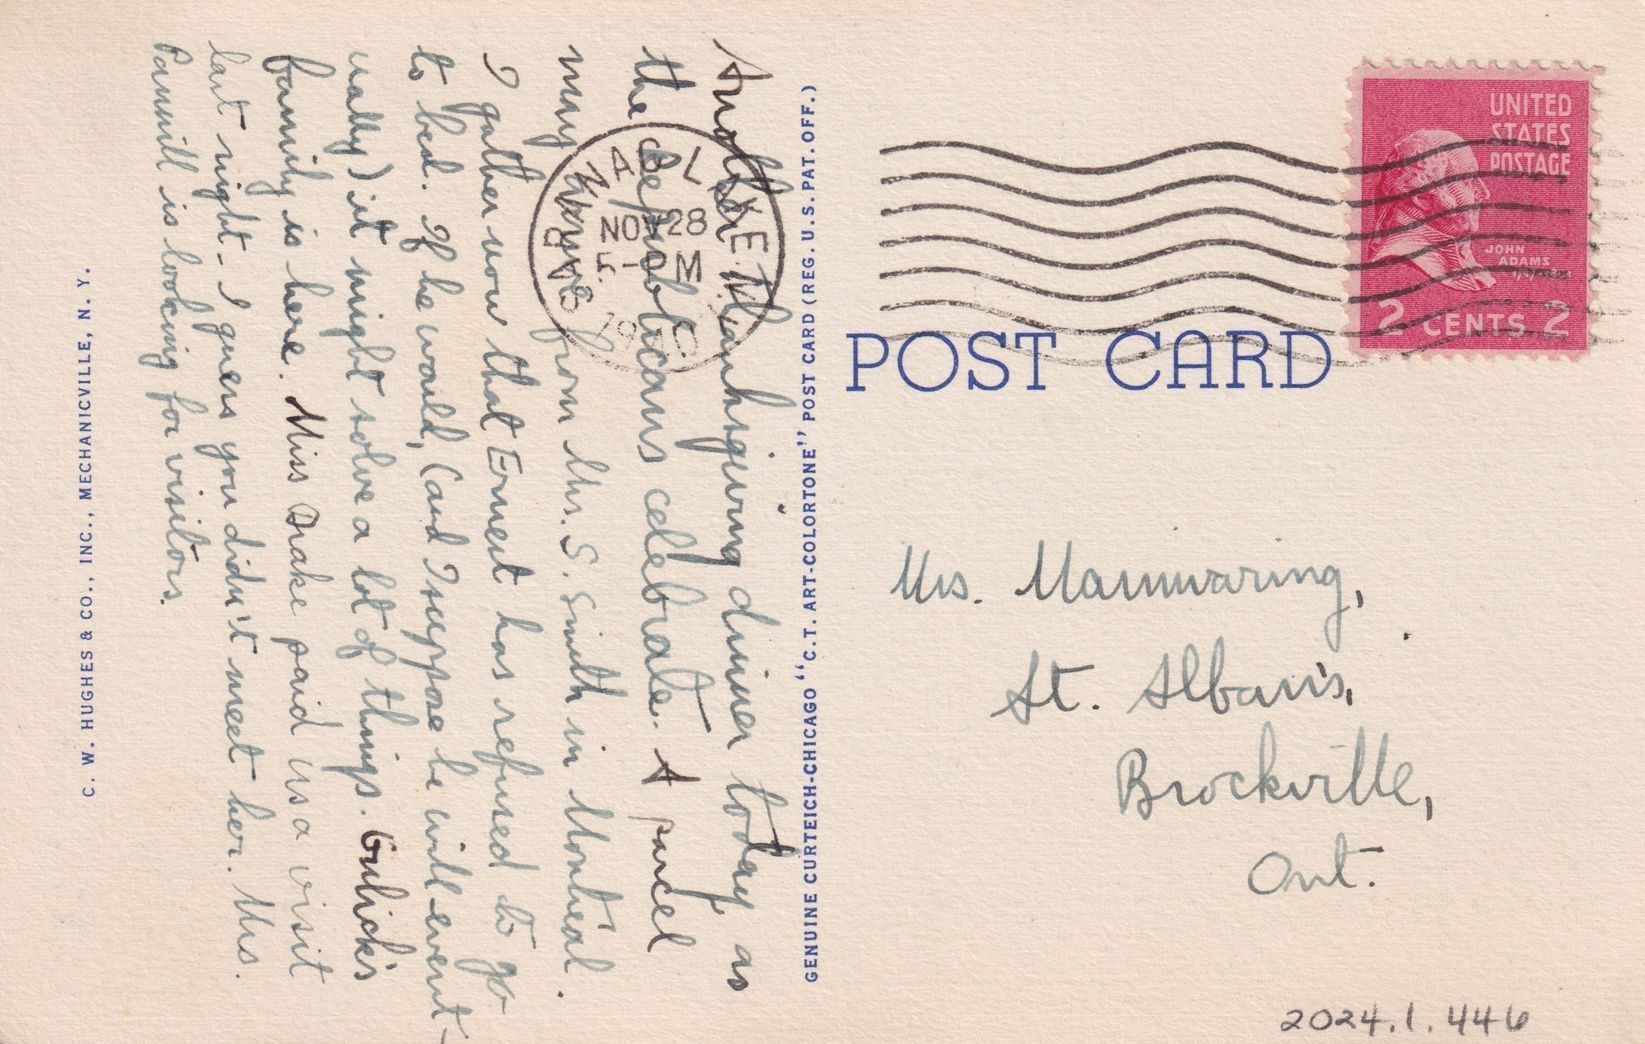 Another Thanksgiving dinner today as
the Republicans celebrate. A parcel
may
from Mrs. S. Smith in Montreal.
I gather now that Ernest has refused to go
to bed. If he would, (and I suppose he will event-
ually) it might solve a lot of things. Gulick's
family is here. Miss Drake paid us a visit
last night - I guess you didn't meet her. Mrs.
Pannill is looking for visitors.
C. W. HUGHES & CO., INC., MECHANICVILLE, N. Y.
GENUINE CURTEICH-CHICAGO "C.T. ART-COLORTONE" POST CARD (REG. U.S. PAT. OFF.)
SARANAC LAKE
NOV 28
5 - PM
UNITED
STATES
POSTAGE
JOHN
ADAMS
2 CENTS 2
POST CARD
Mrs. Mainwaring,
St. Alban's,
Brockville,
Ont.
2024.1.446